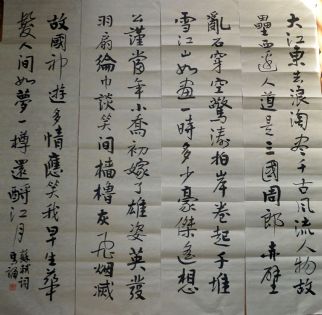 大江東去浪淘尽千古風流人物故
壘西邊人道是三國周郎赤壁
亂石穿空驚濤拍岸卷起千堆
雪江山如畫一時多少豪傑遙想
公謹當年小喬初嫁了雄姿英發
羽扇綸巾談笑间檣櫓灰飞烟滅
故國神遊多情應笑我早生華
髮人间如夢一樽還酹江月
蘇軾词